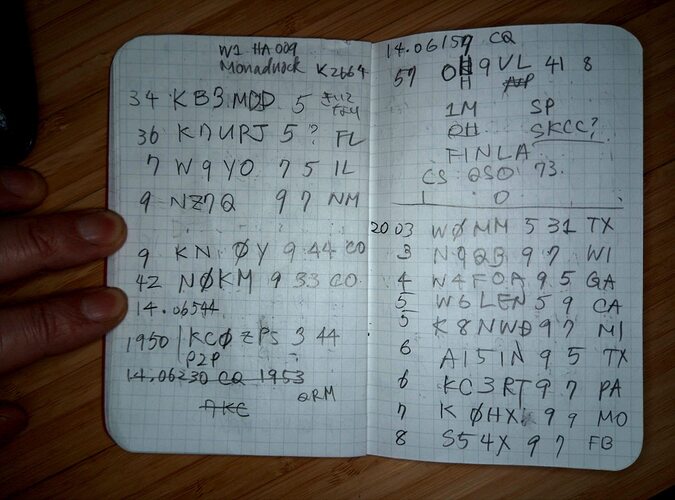 W1 HA 009
Monadnock K2664
34 KB3MDD 5
36 K7URJ 5 ? FL
7 W9YO 7 5 IL
9 NZ7Q 9 7 NM
9 KN ØY 9 44 CO
42 NØKM 9 33 CO
14.06544
1950 KCØZPS 3 44
P2P
14.06230 CQ 1953
QRM
14.06157 CQ
57 9VL 41 8
1M SP
SKCC?
FINLA
CS QSO 73.
20 03 WØMM 5 31 TX
3 N9QB 9 7 WI
4 N4FOA 9 5 GA
5 W6LEN 5 9 CA
5 K8NWD 9 7 MI
6 AI5IN 9 5 TX
6 KC3RT 9 7 PA
7 K ØHX 9 9 MO
8 S54X 9 7 FB